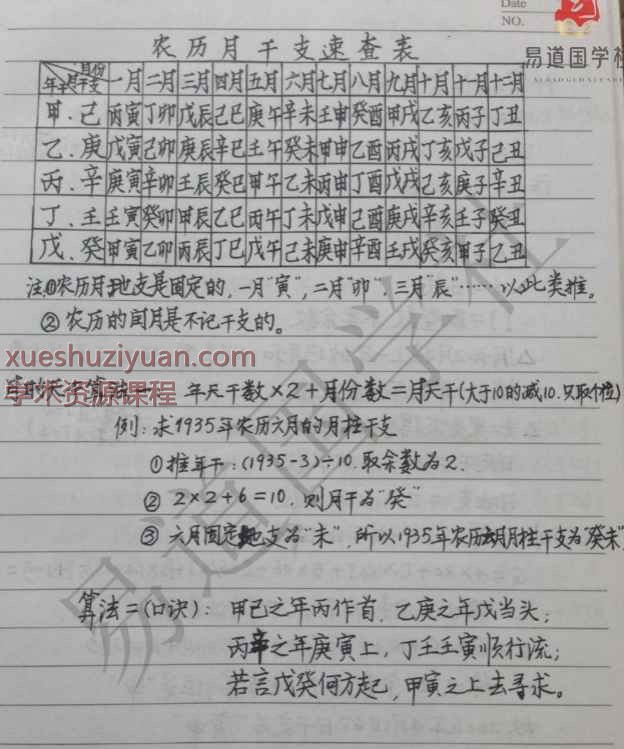 Date
NO.
易道国学社
农历月干支速查表
年干 月干支 月份 一月 二月 三月 四月 五月 六月 七月 八月 九月 十月 十一月 十二月
甲、己 丙寅 丁卯 戊辰 己巳 庚午 辛未 壬申 癸酉 甲戌 乙亥 丙子 丁丑
乙、庚 戊寅 己卯 庚辰 辛巳 壬午 癸未 甲申 乙酉 丙戌 丁亥 戊子 己丑
丙、辛 庚寅 辛卯 壬辰 癸巳 甲午 乙未 丙申 丁酉 戊戌 己亥 庚子 辛丑
丁、壬 壬寅 癸卯 甲辰 乙巳 丙午 丁未 戊申 己酉 庚戌 辛亥 壬子 癸丑
戊、癸 甲寅 乙卯 丙辰 丁巳 戊午 己未 庚申 辛酉 壬戌 癸亥 甲子 乙丑
注①农历月地支是固定的,一月"寅",二月"卯",三月"辰"……以此类推。
②农历的闰月是不记干支的。
xueshuziyuan.com
学术资源课程
年天干数×2+月份数=月天干(大于10的减10.只取个位)
例:求1935年农历六月的月柱干支
①推年干:(1935-3)÷10.取余数为2.
② 2×2+6=10.则月干为"癸"
③ 六月固定地支为"未",所以1935年农历六月月柱干支为"癸未"
算法二(口诀):甲己之年丙作首.乙庚之年戊当头;
丙辛之年庚寅上,丁壬壬寅顺行流;
若言戊癸何方起,甲寅之上去寻求。
易道国学社